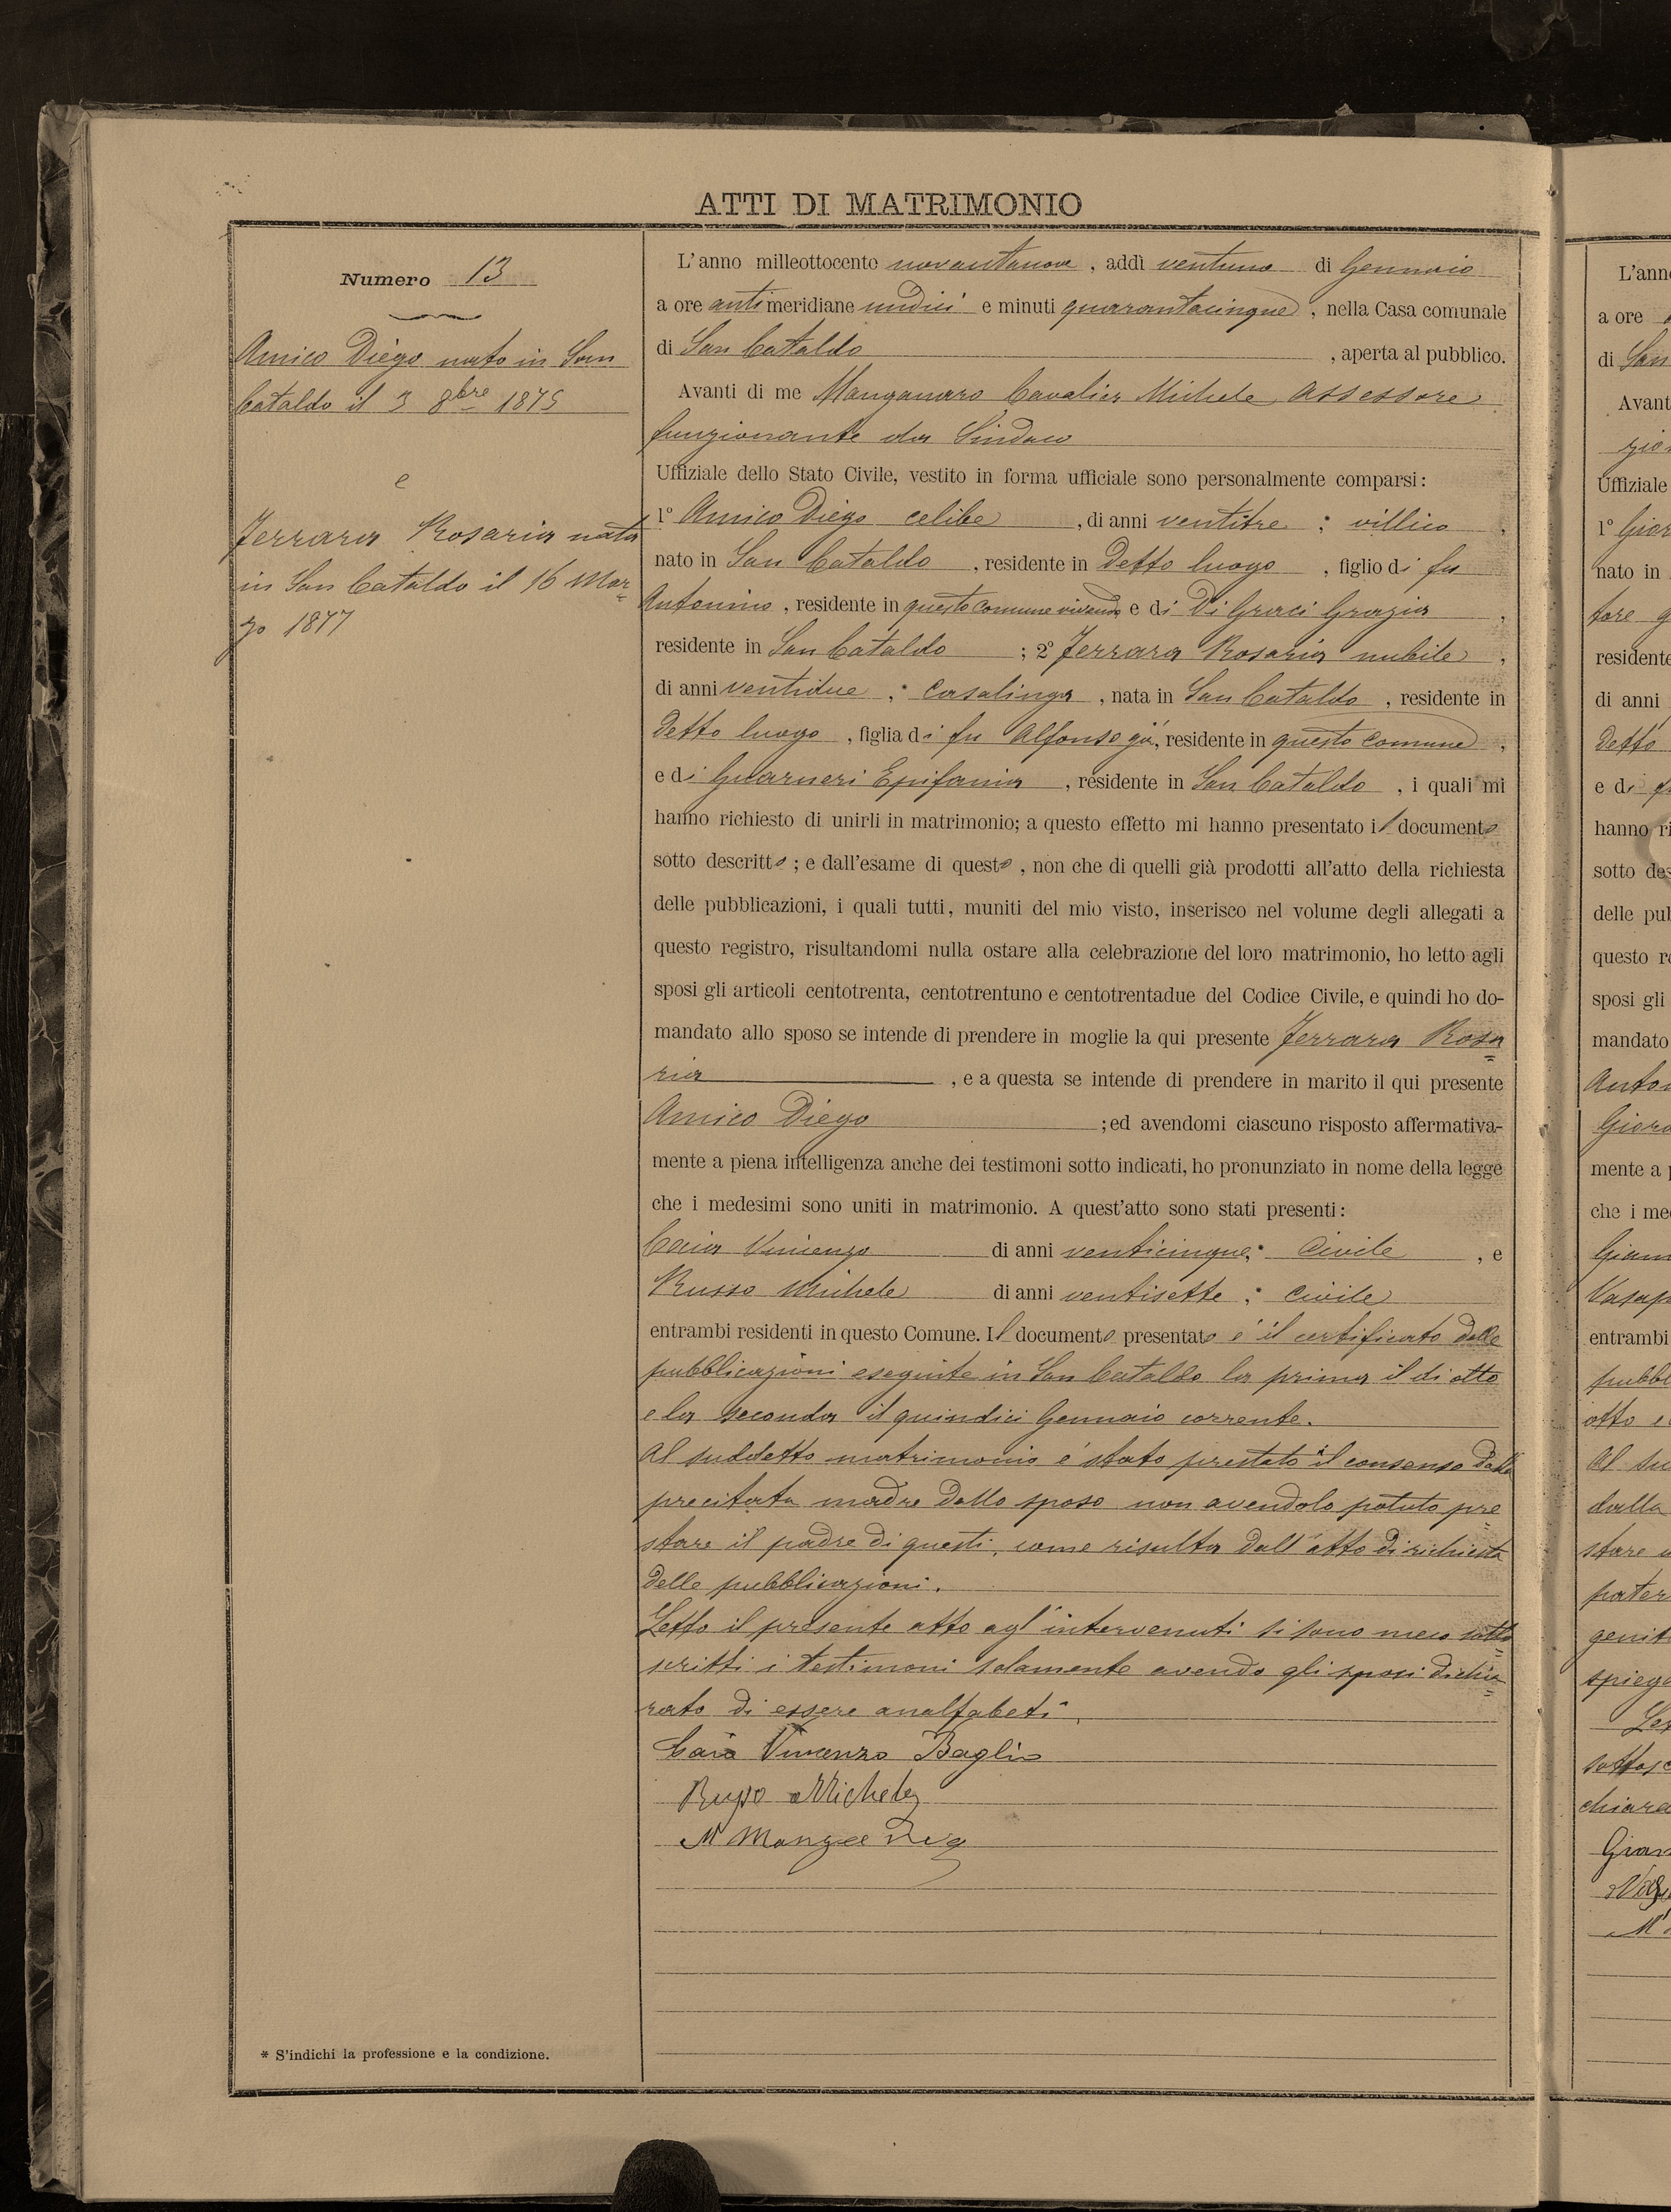 ATTI DI MATRIMONIO
Numero 13
Amico Diego nato in San
Cataldo il 3 8bre 1875
e
Ferrara Rosaria nata
in San Cataldo il 16 Mar=
zo 1877
* S'indichi la professione e la condizione.
L'anno milleottocento novantanove, addì ventuno di Gennaio
a ore antimeridiane undici e minuti quarantacinque, nella Casa comunale
di San Cataldo, aperta al pubblico.
Avanti di me Manganaro Cavalier Michele Assessore
funzionante da Sindaco
Uffiziale dello Stato Civile, vestito in forma ufficiale sono personalmente comparsi:
1º Amico Diego celibe, di anni ventitre; villico,
nato in San Cataldo, residente in Detto luogo, figlio di fu
Antonino, residente in questo comune vivendo e di Di Graci Grazia,
residente in San Cataldo; 2º Ferrara Rosaria nubile,
di anni ventidue, casalinga, nata in San Cataldo, residente in
Detto luogo, figlia di fu Alfonso già, residente in questo comune,
e di Guarneri Epifania, residente in San Cataldo, i quali mi
hanno richiesto di unirli in matrimonio; a questo effetto mi hanno presentato il documento
sotto descritto; e dall'esame di questo, non che di quelli già prodotti all'atto della richiesta
delle pubblicazioni, i quali tutti, muniti del mio visto, inserisco nel volume degli allegati a
questo registro, risultandomi nulla ostare alla celebrazione del loro matrimonio, ho letto agli
sposi gli articoli centotrenta, centotrentuno e centotrentadue del Codice Civile, e quindi ho do-
mandato allo sposo se intende di prendere in moglie la qui presente Ferrara Rosa=
ria, e a questa se intende di prendere in marito il qui presente
Amico Diego; ed avendomi ciascuno risposto affermativa-
mente a piena intelligenza anche dei testimoni sotto indicati, ho pronunziato in nome della legge
che i medesimi sono uniti in matrimonio. A quest'atto sono stati presenti:
Caia Vincenzo di anni venticinque; civile, e
Russo Michele di anni ventisette; civile
entrambi residenti in questo Comune. Il documento presentato é il certificato delle
pubblicazioni eseguite in San Cataldo la prima il di otto
e la seconda il quindici Gennaio corrente.
Al suddetto matrimonio é stato prestato il consenso dalla
precitata madre dello sposo non avendolo potuto pre=
stare il padre di questi, come risulta dall'atto di richiesta
delle pubblicazioni.
Letto il presente atto agl'intervenuti si sono meco sotto=
scritti i testimoni solamente avendo gli sposi dichia=
rato di essere analfabeti.
Caia Vincenzo Baglio
Russo Michele
L'ann
a ore
di San
Avant
zio
Uffiziale
1º Gior
nato in
tore
residente
di anni
Detto
e di
hanno ri
sotto des
delle pub
questo re
sposi gli
mandato
Anto
Gior
mente a p
che i me
Giam
Vasap
entrambi
pubbl
otto e
Al su
dalla
stare
pater
genit
spiega
Le
sottosc
chiara
Giam